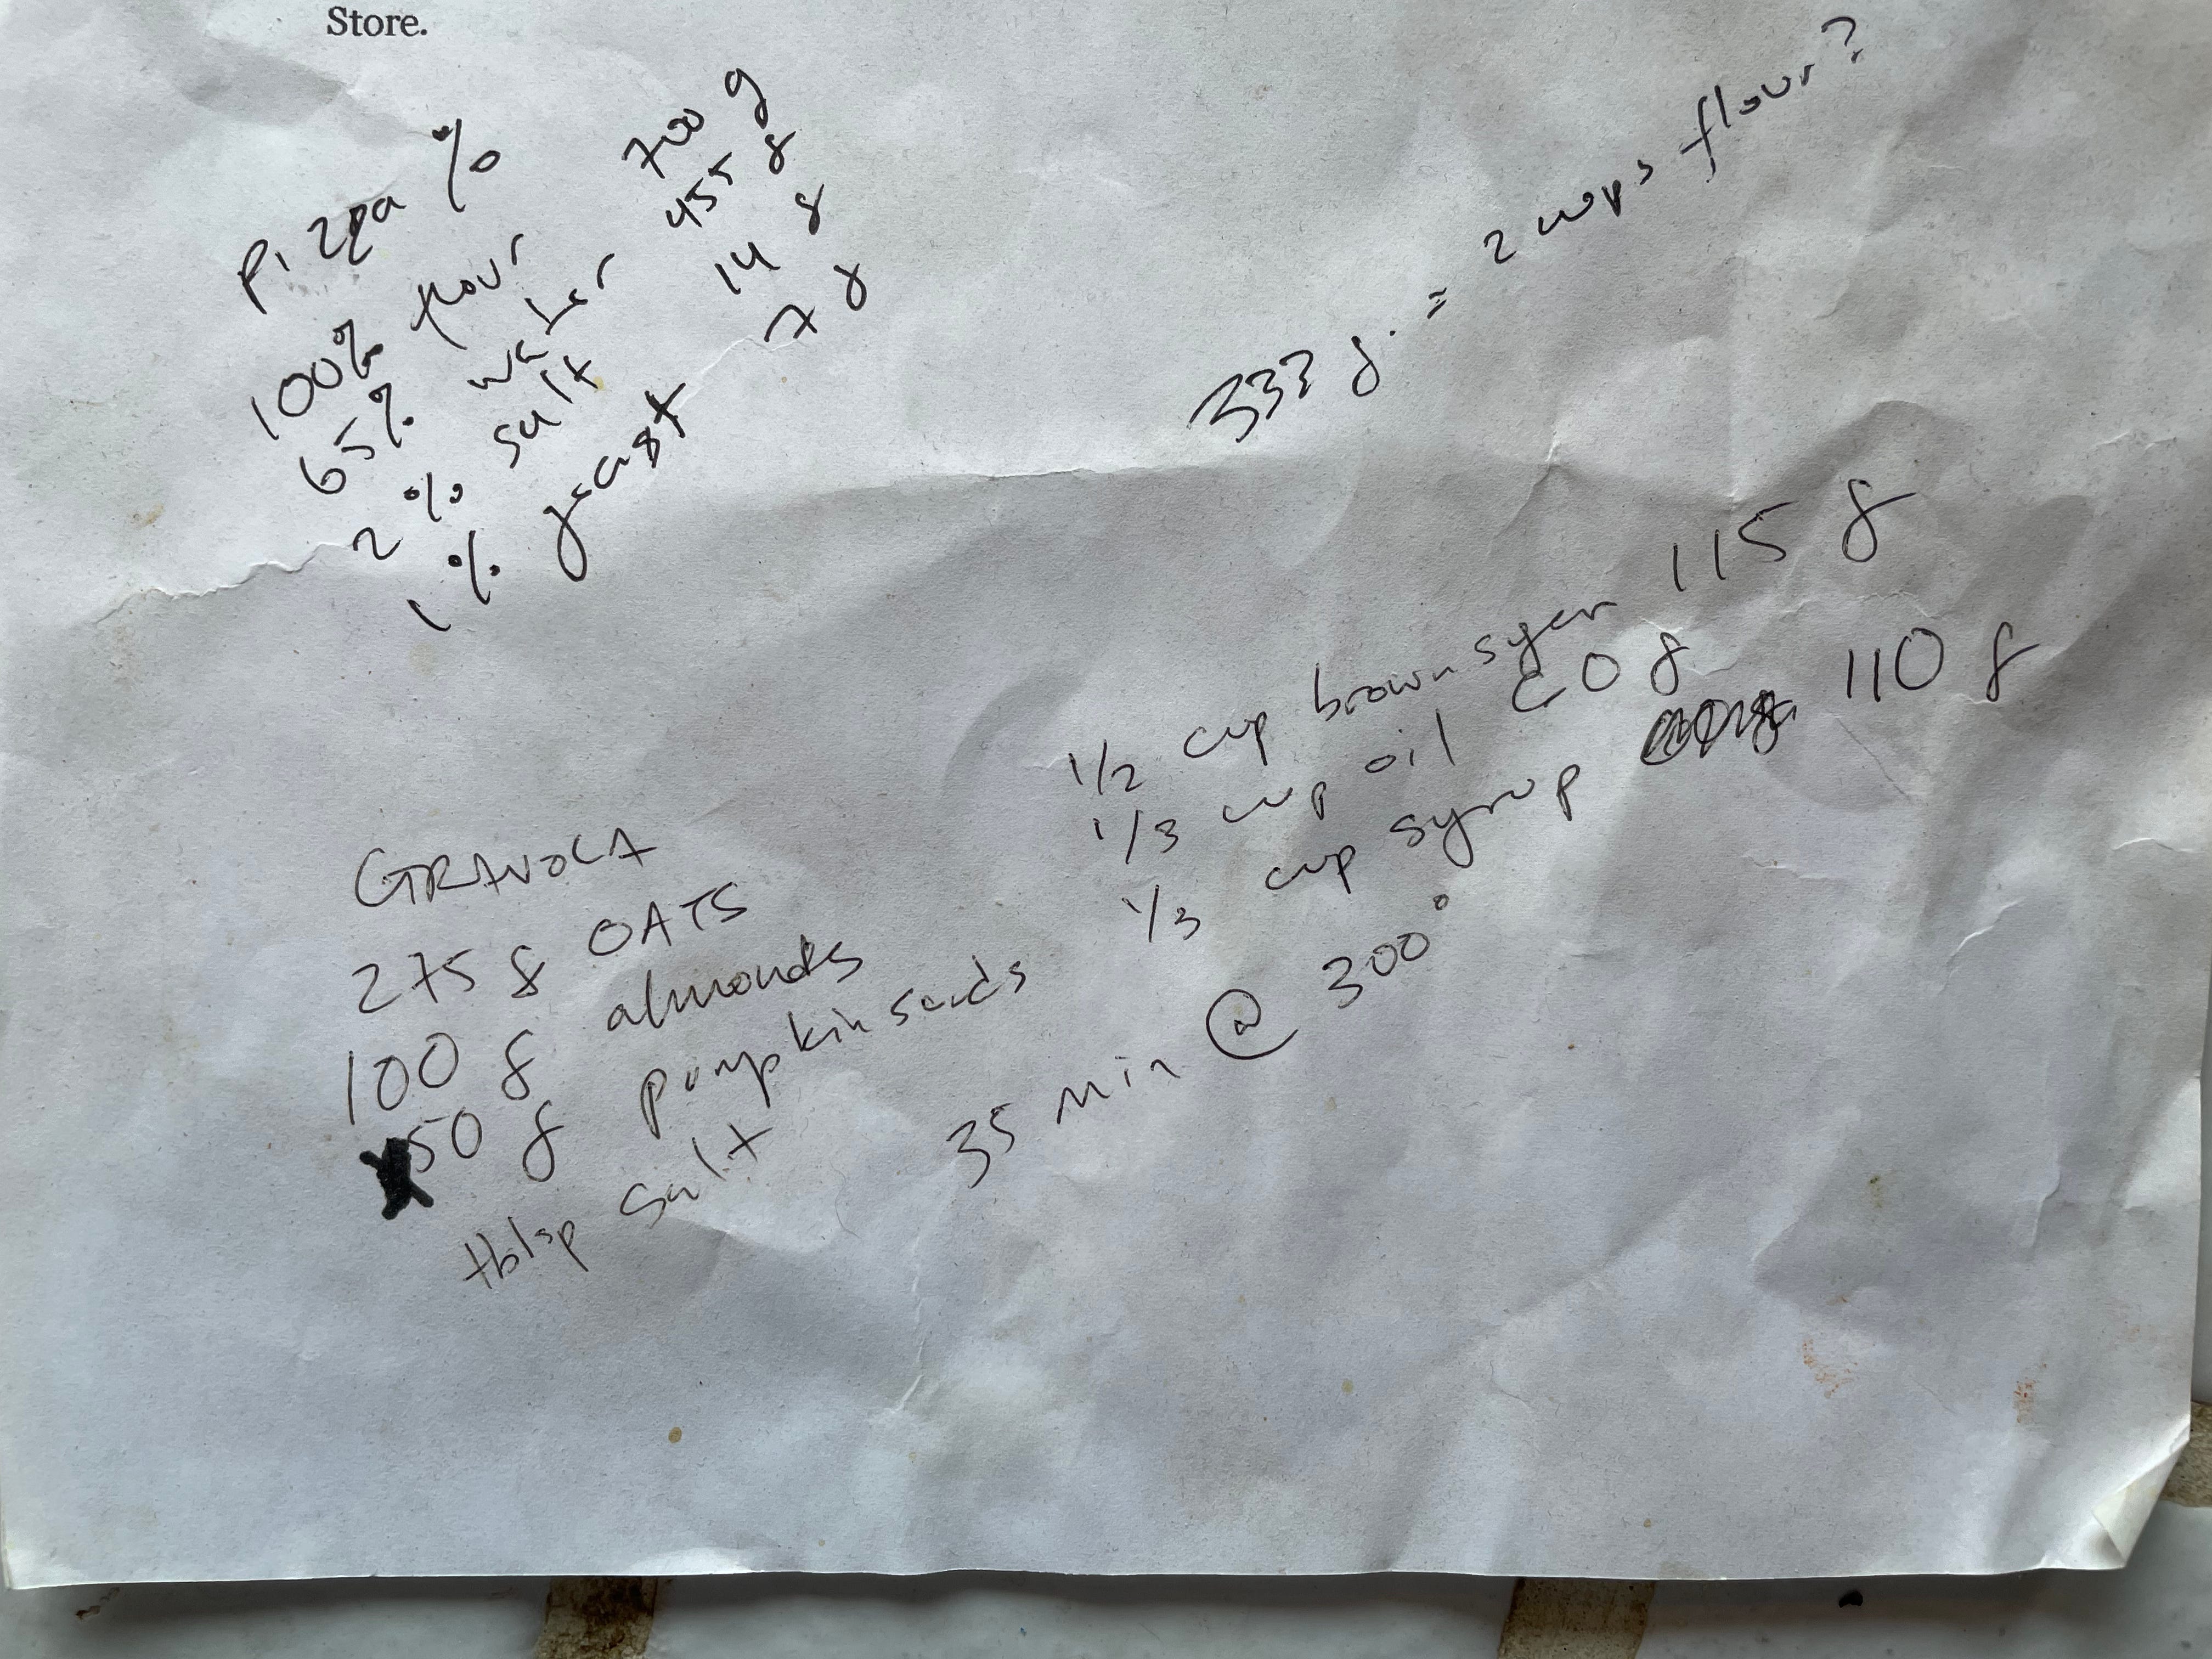 Store.
Pizza %
100% flour 700 g
65% water 455 g
2% salt 14 g
1% yeast 7 g
333 g. = 2 cups flour?
GRANOLA
275 g OATS
100 g almonds
50 g pumpkin seeds
tblsp salt
1/2 cup brown suger 115 g
1/3 cup oil 60 g
1/3 cup syrup 110 g
35 min @ 300°